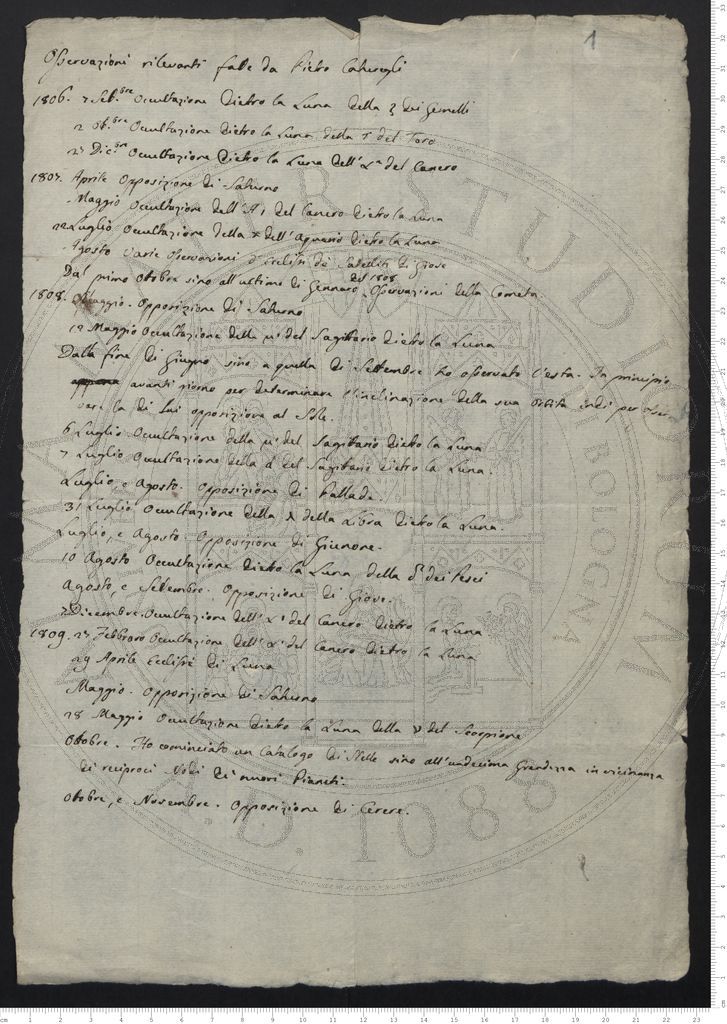 1
Osservazioni rilevanti fatte da Pietro Caturegli
1806. 7 Set.bre Occultazione dietro la Luna della ζ dei Gemelli
2 Ot.bre Occultazione dietro la Luna della τ del Toro
27 Dic.bre Occultazione dietro la Luna dell'α del Cancro
1807. Aprile Opposizione di Saturno
Maggio Occultazione dell'A1 del Cancro dietro la Luna
22 Luglio Occultazione della χ dell'Aquario dietro la Luna
Agosto varie Osservazioni d'Eclissi dei Satelliti di Giove
Dal primo Ottobre sino all'ultimo di Gennaro del 1808 Osservazioni della Cometa
1808. Maggio. Opposizione di Saturno
12 Maggio Occultazione della μ1 del Sagittario dietro la Luna
Dalla fine di Giugno sino a quella di Settembre ho osservato Vesta. In principio
avanti giorno per determinare l'inclinazione della sua Orbita indi per osser
vare la di lui opposizione al Sole.
6 Luglio Occultazione della μ1 del Sagittario dietro la Luna
7 Luglio Occultazione della d del Sagittario dietro la Luna.
Luglio, e Agosto. Opposizione di Pallade.
31 Luglio Occultazione della λ della Libra dietro la Luna.
Luglio, e Agosto. Opposizione di Giunone.
10 Agosto Occultazione dietro la Luna della dei Pesci
Agosto, e Settembre. Opposizione di Giove.
7 Dicembre. Occultazione dell'α1 del Cancro dietro la Luna
1809. 27 Febbraro Occultazione dell'α1 del Cancro dietro la Luna
29 Aprile Eclisse di Luna
Maggio. Opposizione di Saturno
28 Maggio Occultazione dietro la Luna della ν del Scorpione
Ottobre. Ho cominciato un Catalogo di Stelle sino all'undecima Grandezza in vicinanza
di reciproci Nodi di nuovi Pianeti.
Ottobre, e Novembre. Opposizione di Cerere.
ALMA MATER STUDIORUM
DI BOLOGNA
A.D. 1088